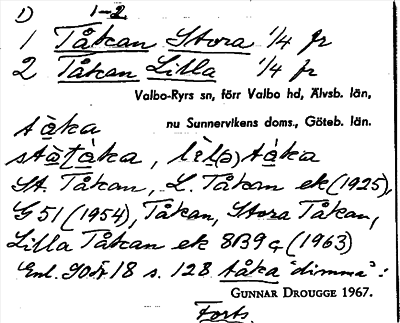 1) 1-2.
1 Tåkan Stora 1/4 fr
2 Tåkan Lilla 1/4 fr
Valbo-Ryrs sn, förr Valbo hd, Älvsb. län,
tåka nu Sunnervikens doms., Göteb. län.
ståtåka, lìl(ə)tåka
St. Tåkan, L. Tåkan ek (1925),
G51 (1954), Tåkan, Stora Tåkan,
Lilla Tåkan ek 8B9c (1963)
Enl. SOÄ 18 s. 128 tåka "dimma":
GUNNAR DROUGGE 1967.
Forts.